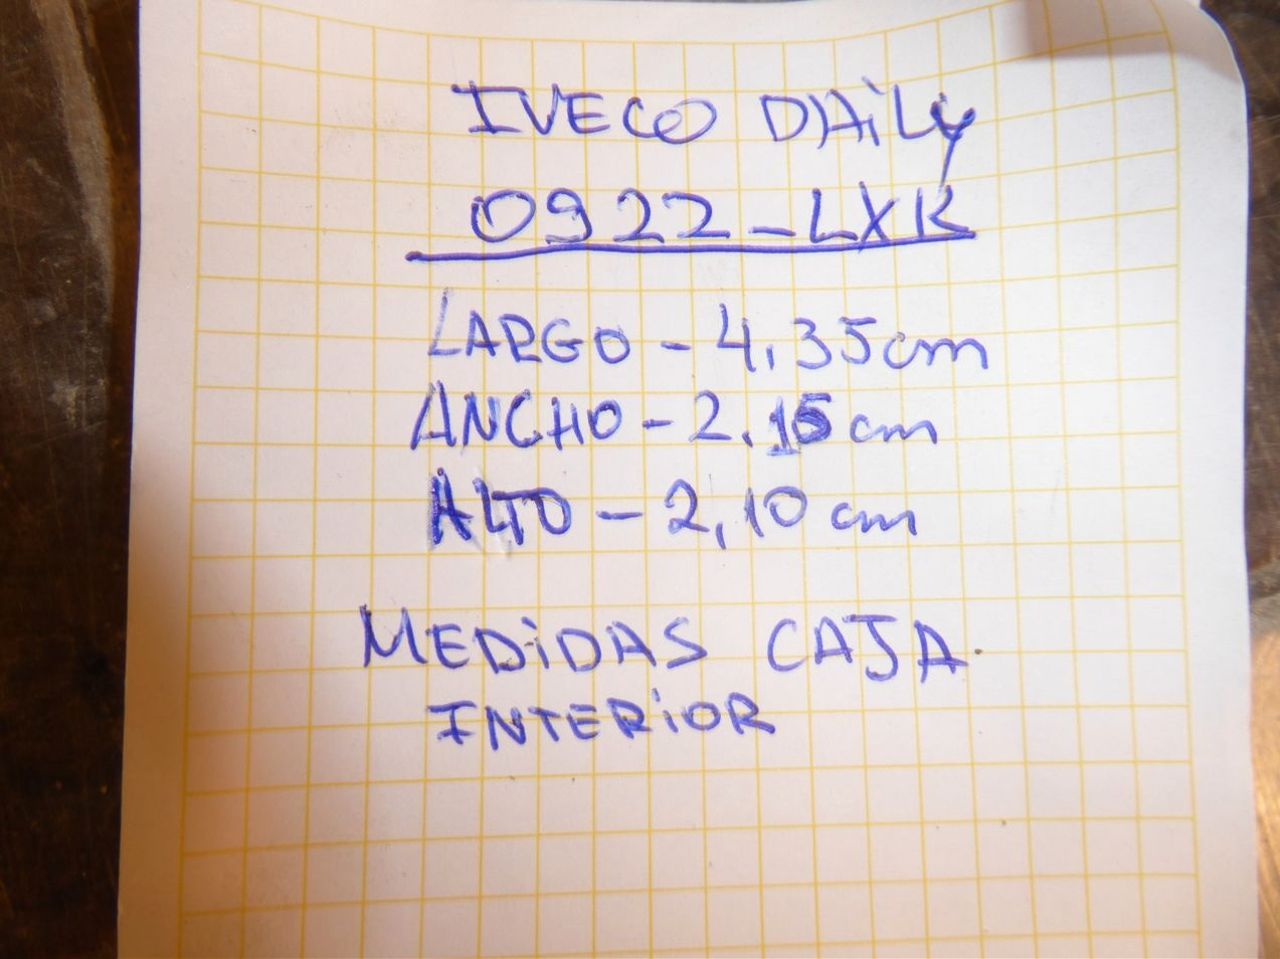 IVECO DAiLy
0922-LXR
LARGO - 4,35cm
ANCHO - 2.15 cm
ALTO - 2,10 cm
MEDiDAS CAJA.
INTERiOR